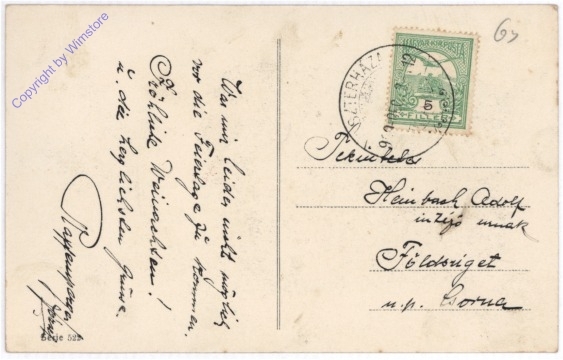 Copyright by Wimstore
War mir leider nicht möglich
vor die Feiertage zu kommen.
Fröhliche Weinachten!
u. die herzlichsten Grüsse.
Serie 522
MAGYAR KIR. POSTA
5
FILLER
ESZTERHÁZA
Tekintetes
Heimbach Adolf
intéző urnak
Földsziget
u. p. Csorna